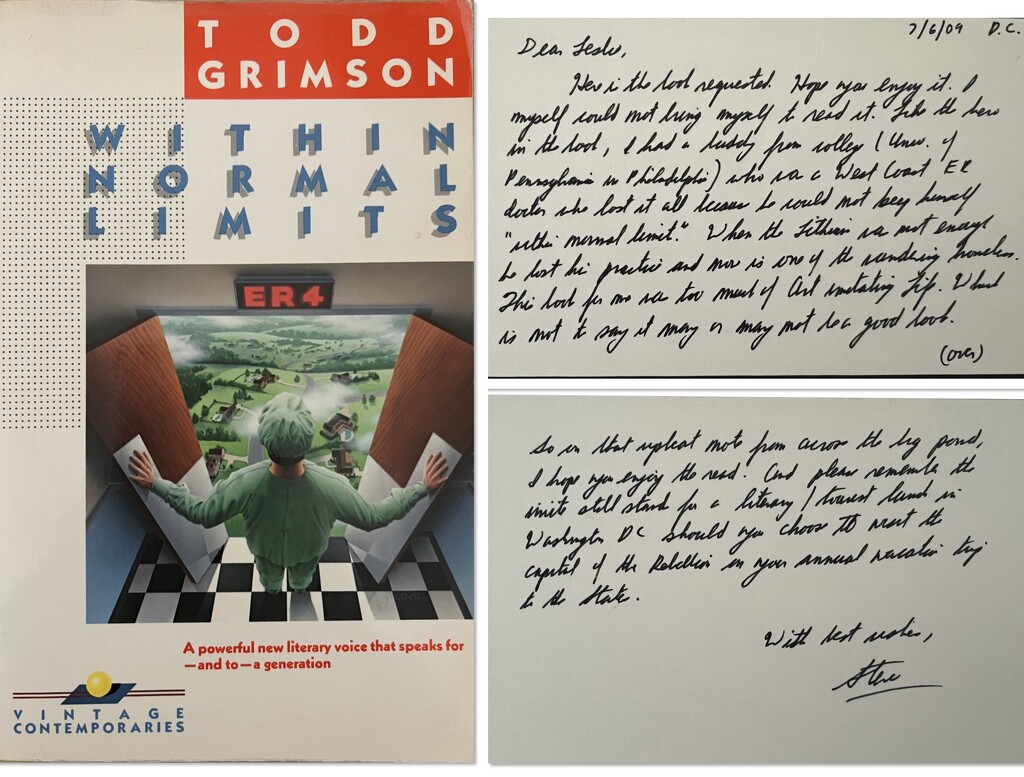 TODD
GRIMSON
WITHIN
NORMAL
LIMITS
ER 4
A powerful new literary voice that speaks for
—and to—a generation
VINTAGE
CONTEMPORARIES
7/6/09 D.C.
Dear Leslie,
Here is the book requested. Hope you enjoy it. I
myself could not bring myself to read it. Like the hero
in the book, I had a buddy from college (Univ. of
Pennsylvania in Philadelphia) who was a West Coast ER
doctor who lost it all because he could not keep himself
"within normal limits." When the Lithium was not enough
he lost his practice and now is one of the wandering homeless.
This book for me was too much of Art imitating Life. Which
is not to say it may or may not be a good book.
(over)
So on that upbeat note from across the big pond,
I hope you enjoy the read. And please remember the
invite still stands for a literary/tourist lunch in
Washington DC should you choose to visit the
capital of the Rebellion on your annual vacation trip
to the States.
With best wishes,
Steve